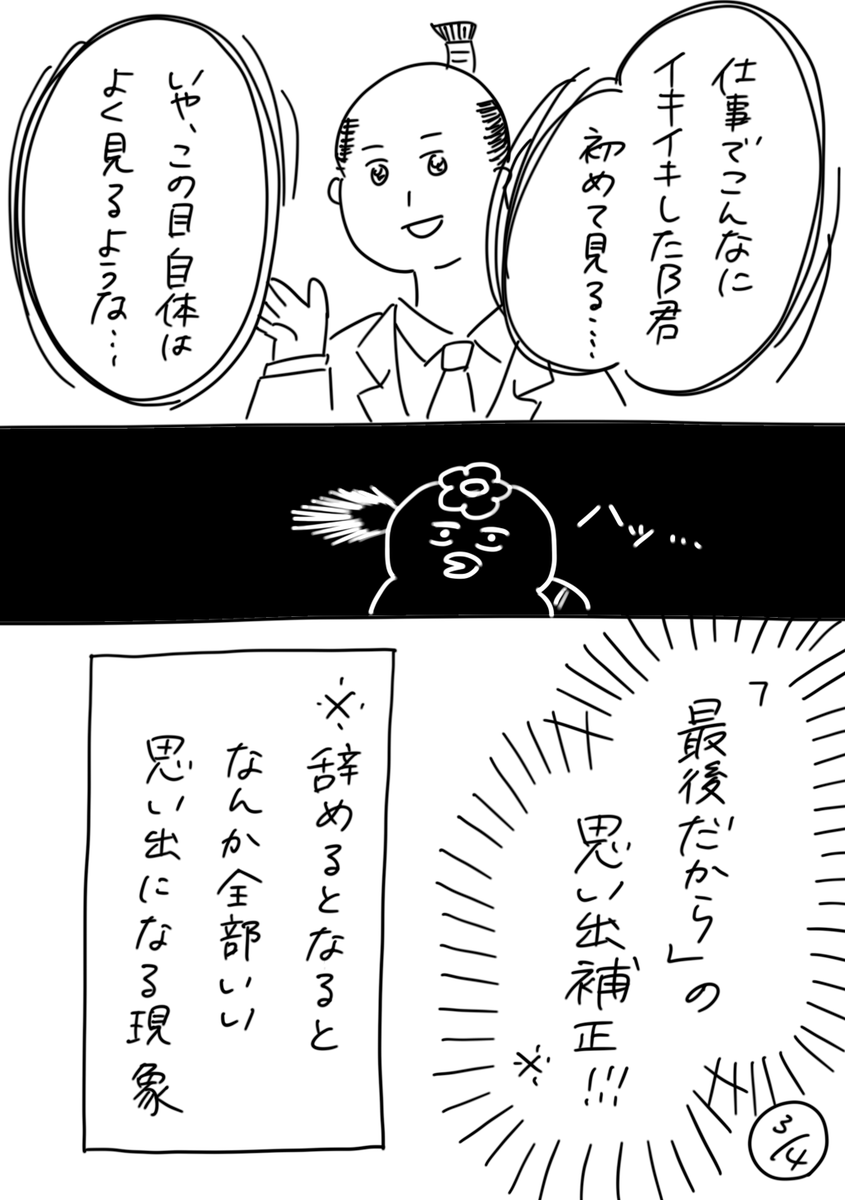 仕事でこんなに
イキイキしたB君
初めて見る…
いや、この目自体は
よく見るような…
ハッ…
「最後だから」の
思い出補正!!!
※
※辞めるとなると
なんか全部いい
思い出になる現象
3/4